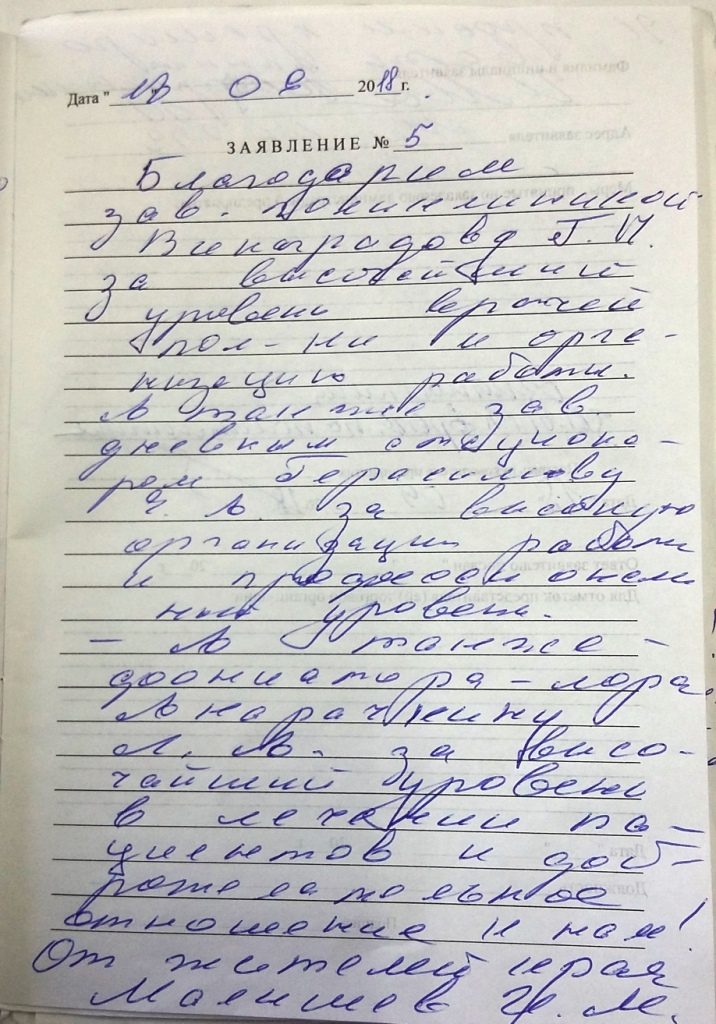 Дата " 17 09 2018 г.
ЗАЯВЛЕНИЕ № 5
Благодарим
зав. поликлиникой
Виноградову Т. И.
за высочайший
уровень врачей
пол-ки и орга-
низацию работы.
А также зав
дневным стациона-
ром Герасимову
за высокую
организацию работы
и профессиональ
ный уровень.
- А также -
фониатора - лора
А. А. за высо-
чайший уровень
в лечении па-
циентов и доб-
рожелательное
отношение к нам!
От жителей края